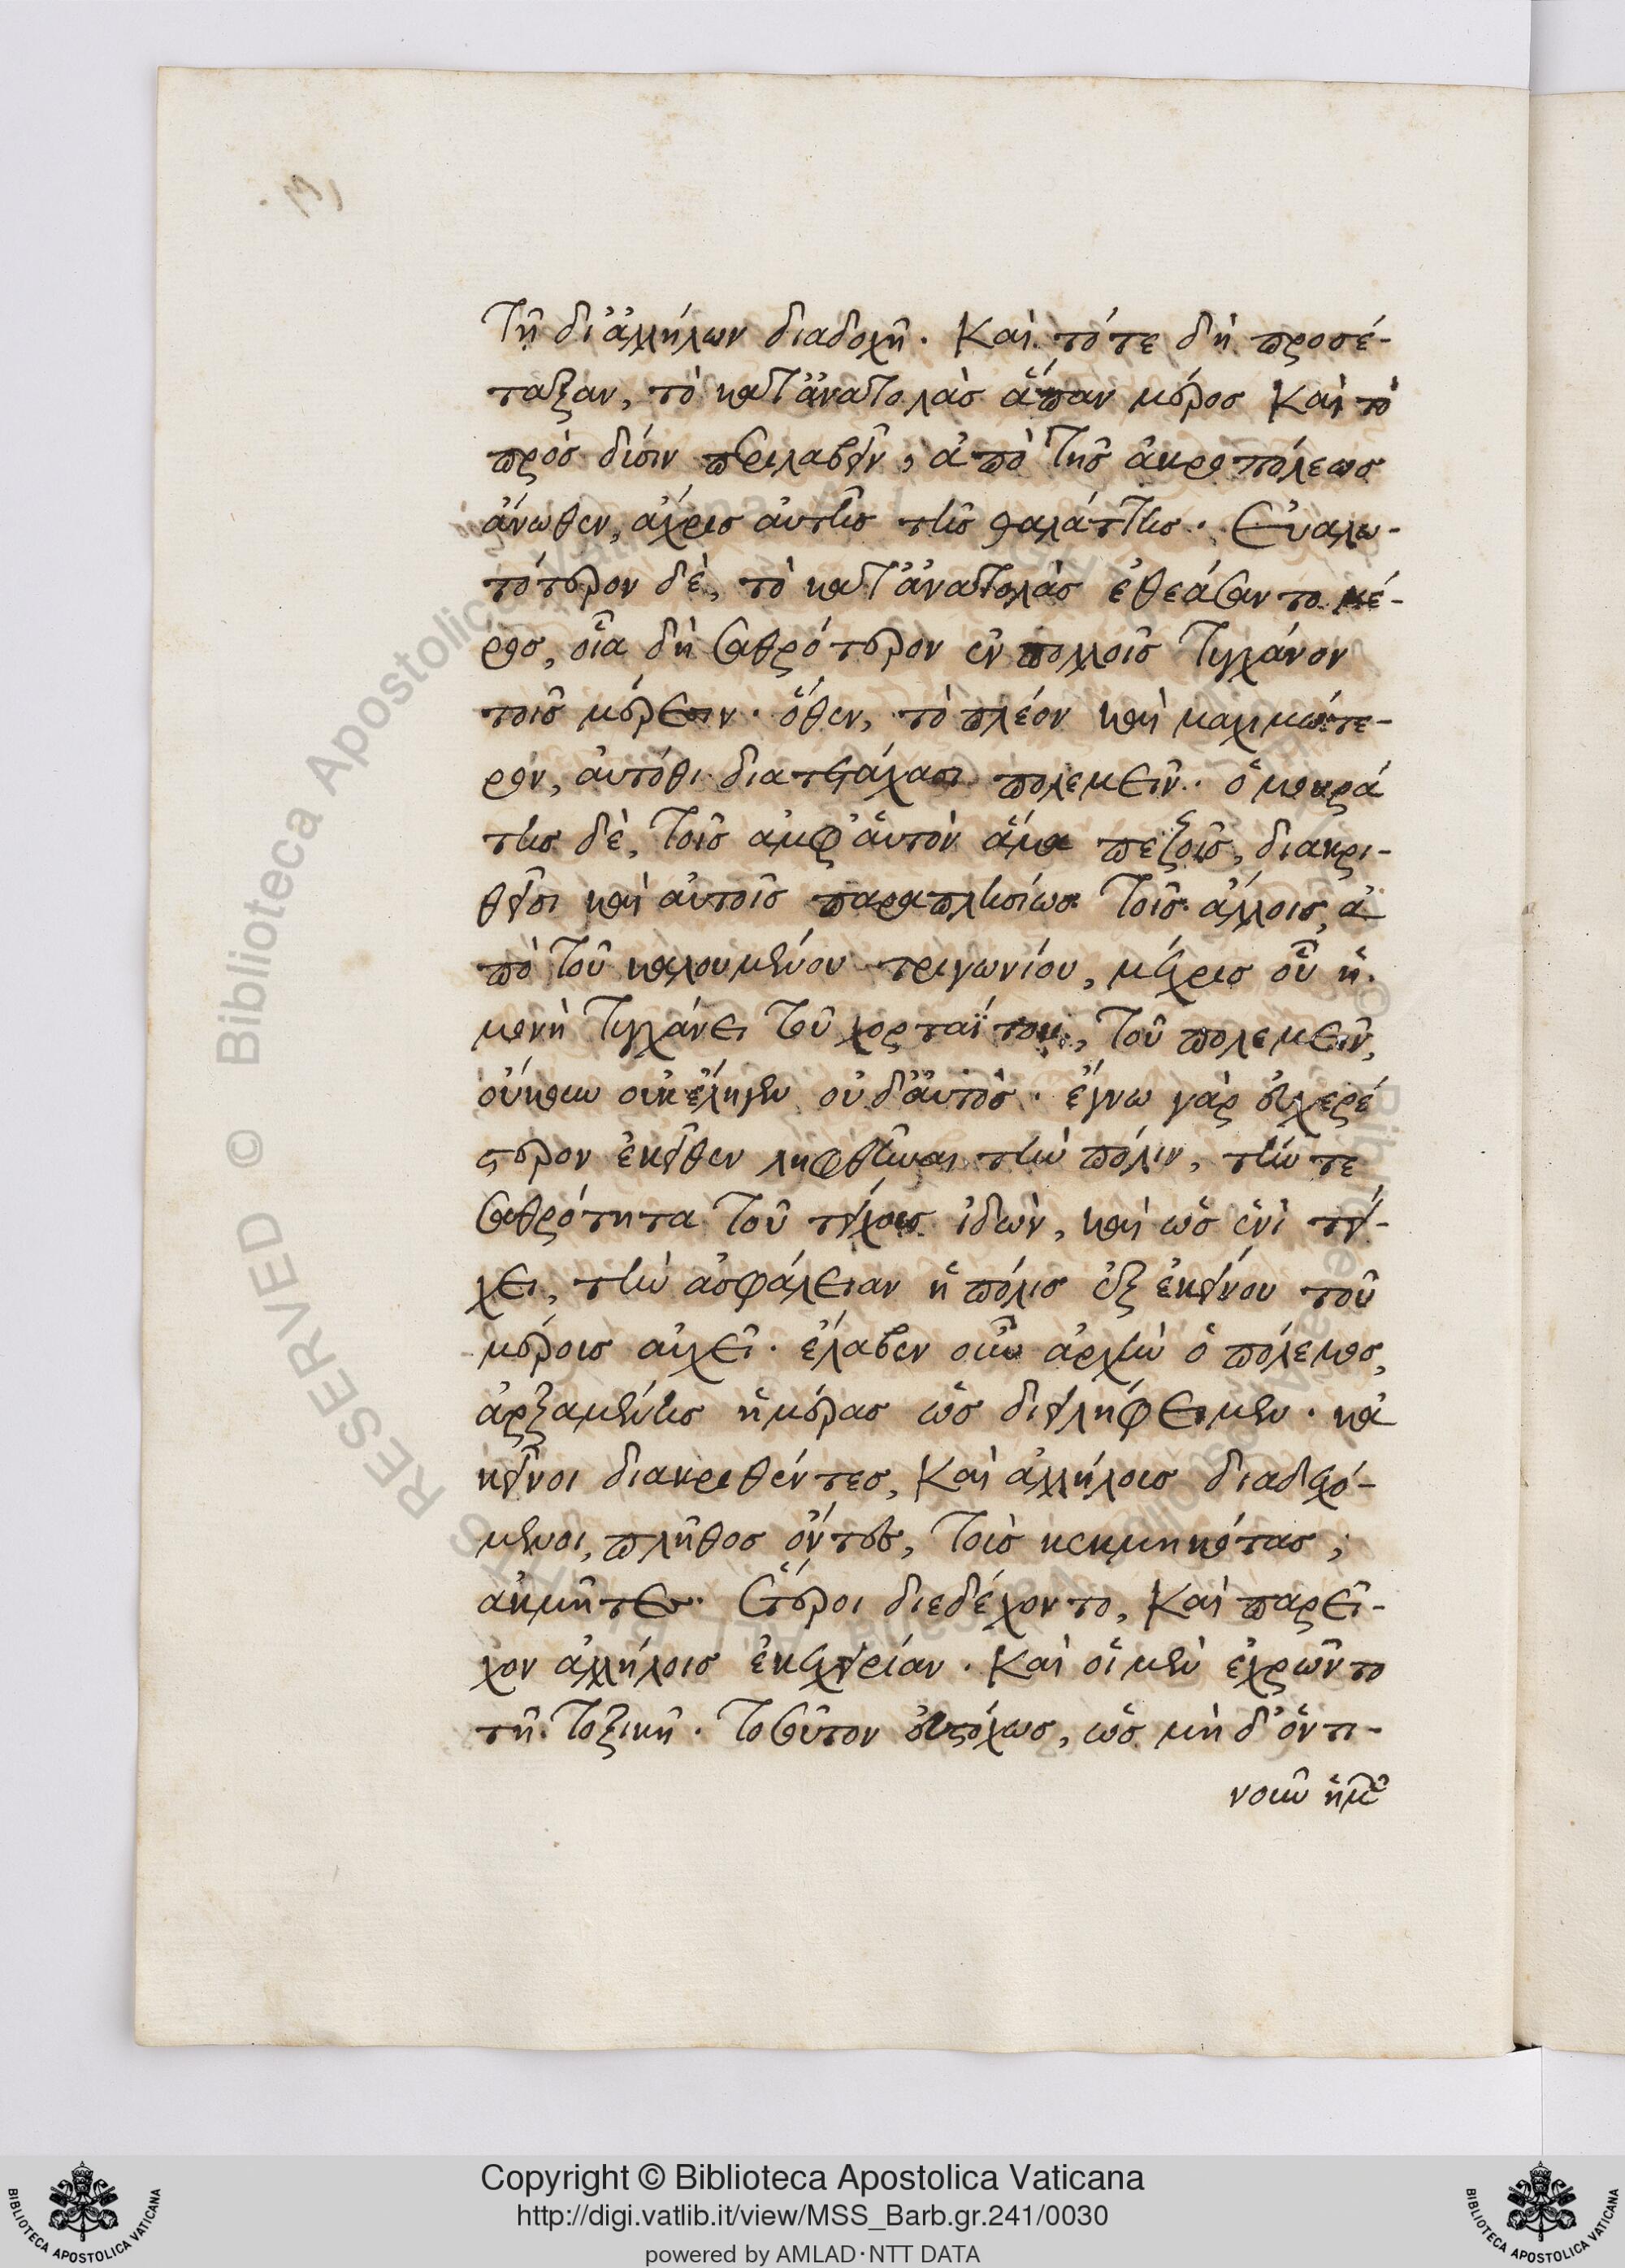 τῆ δι' ἀλλήλων διαδοχῆ. Καὶ τότε δὴ προσέ-
ταξαν, τὸ κατ' ἀνατολὰς ἅπαν μέρος καὶ τὸ
πρὸς δύσιν περιλαβεῖν, ἀπὸ τῆς ἀκροπόλεως
ἄνωθεν, ἄχρις αὐτῆς τῆς θαλάττης. Εὐαλω-
τότερον δὲ, τὸ κατ' ἀνατολὰς ἐθεάσαντο μέ-
ρος, οἷα δὴ σαθρότερον ἐν πολλοῖς τυγχάνον
τοῖς μέρεσιν. ὅθεν, τὸ πλέον καὶ μαχιμώτε-
ρον, αὐτόθι διατετάχασι πολεμεῖν. ὁ μουρά
της δὲ, τοῖς ἀμφ' αὑτὸν ἅμα πεζοῖς, διακρι-
θεῖσι καὶ αὐτοῖς παραπλησίως τοῖς ἄλλοις, ἀ
πὸ τοῦ καλουμένου τριγωνίου, μέχρις οὗ ἡ
μονὴ τυγχάνει τοῦ χορταΐτου, τοῦ πολεμεῖν,
οὔκουν οὐκ ἔληγεν οὐδ' αὐτὸς. ἔγνω γὰρ εὐχερέ
στερον ἐκεῖθεν ληφθῆναι τὴν πόλιν, τήν τε
σαθρότητα τοῦ τείχους ἰδὼν, καὶ ὡς ἑνὶ τεί-
χει, τὴν ἀσφάλειαν ἡ πόλις ἐξ ἐκείνου τοῦ
μέρους αὐχεῖ. ἔλαβεν οὖν ἀρχὴν ὁ πόλεμος,
ἀρξαμένης ἡμέρας ὡς διειλήφειμεν. κἀ
κεῖνοι διακριθέντες, καὶ ἀλλήλοις διαδεχό-
μενοι, πλῆθος ὄντες, τοὺς κεκμηκότας,
ἀκμῆτες ἕτεροι διεδέχοντο, καὶ παρεῖ-
χον ἀλλήλοις ἐκεχειρίαν. καὶ οἱ μὲν ἐχρῶντο
τῆ τοξικῆ. τοσοῦτον εὐστόχως, ὡς μὴ δ' ὅντι-
νοῦν ἡμ
Copyright © Biblioteca Apostolica Vaticana
http://digi.vatlib.it/view/MSS_Barb.gr.241/0030
powered by AMLAD·NTT DATA
BIBLIOTECA APOSTOLICA VATICANA
BIBLIOTECA APOSTOLICA VATICANA